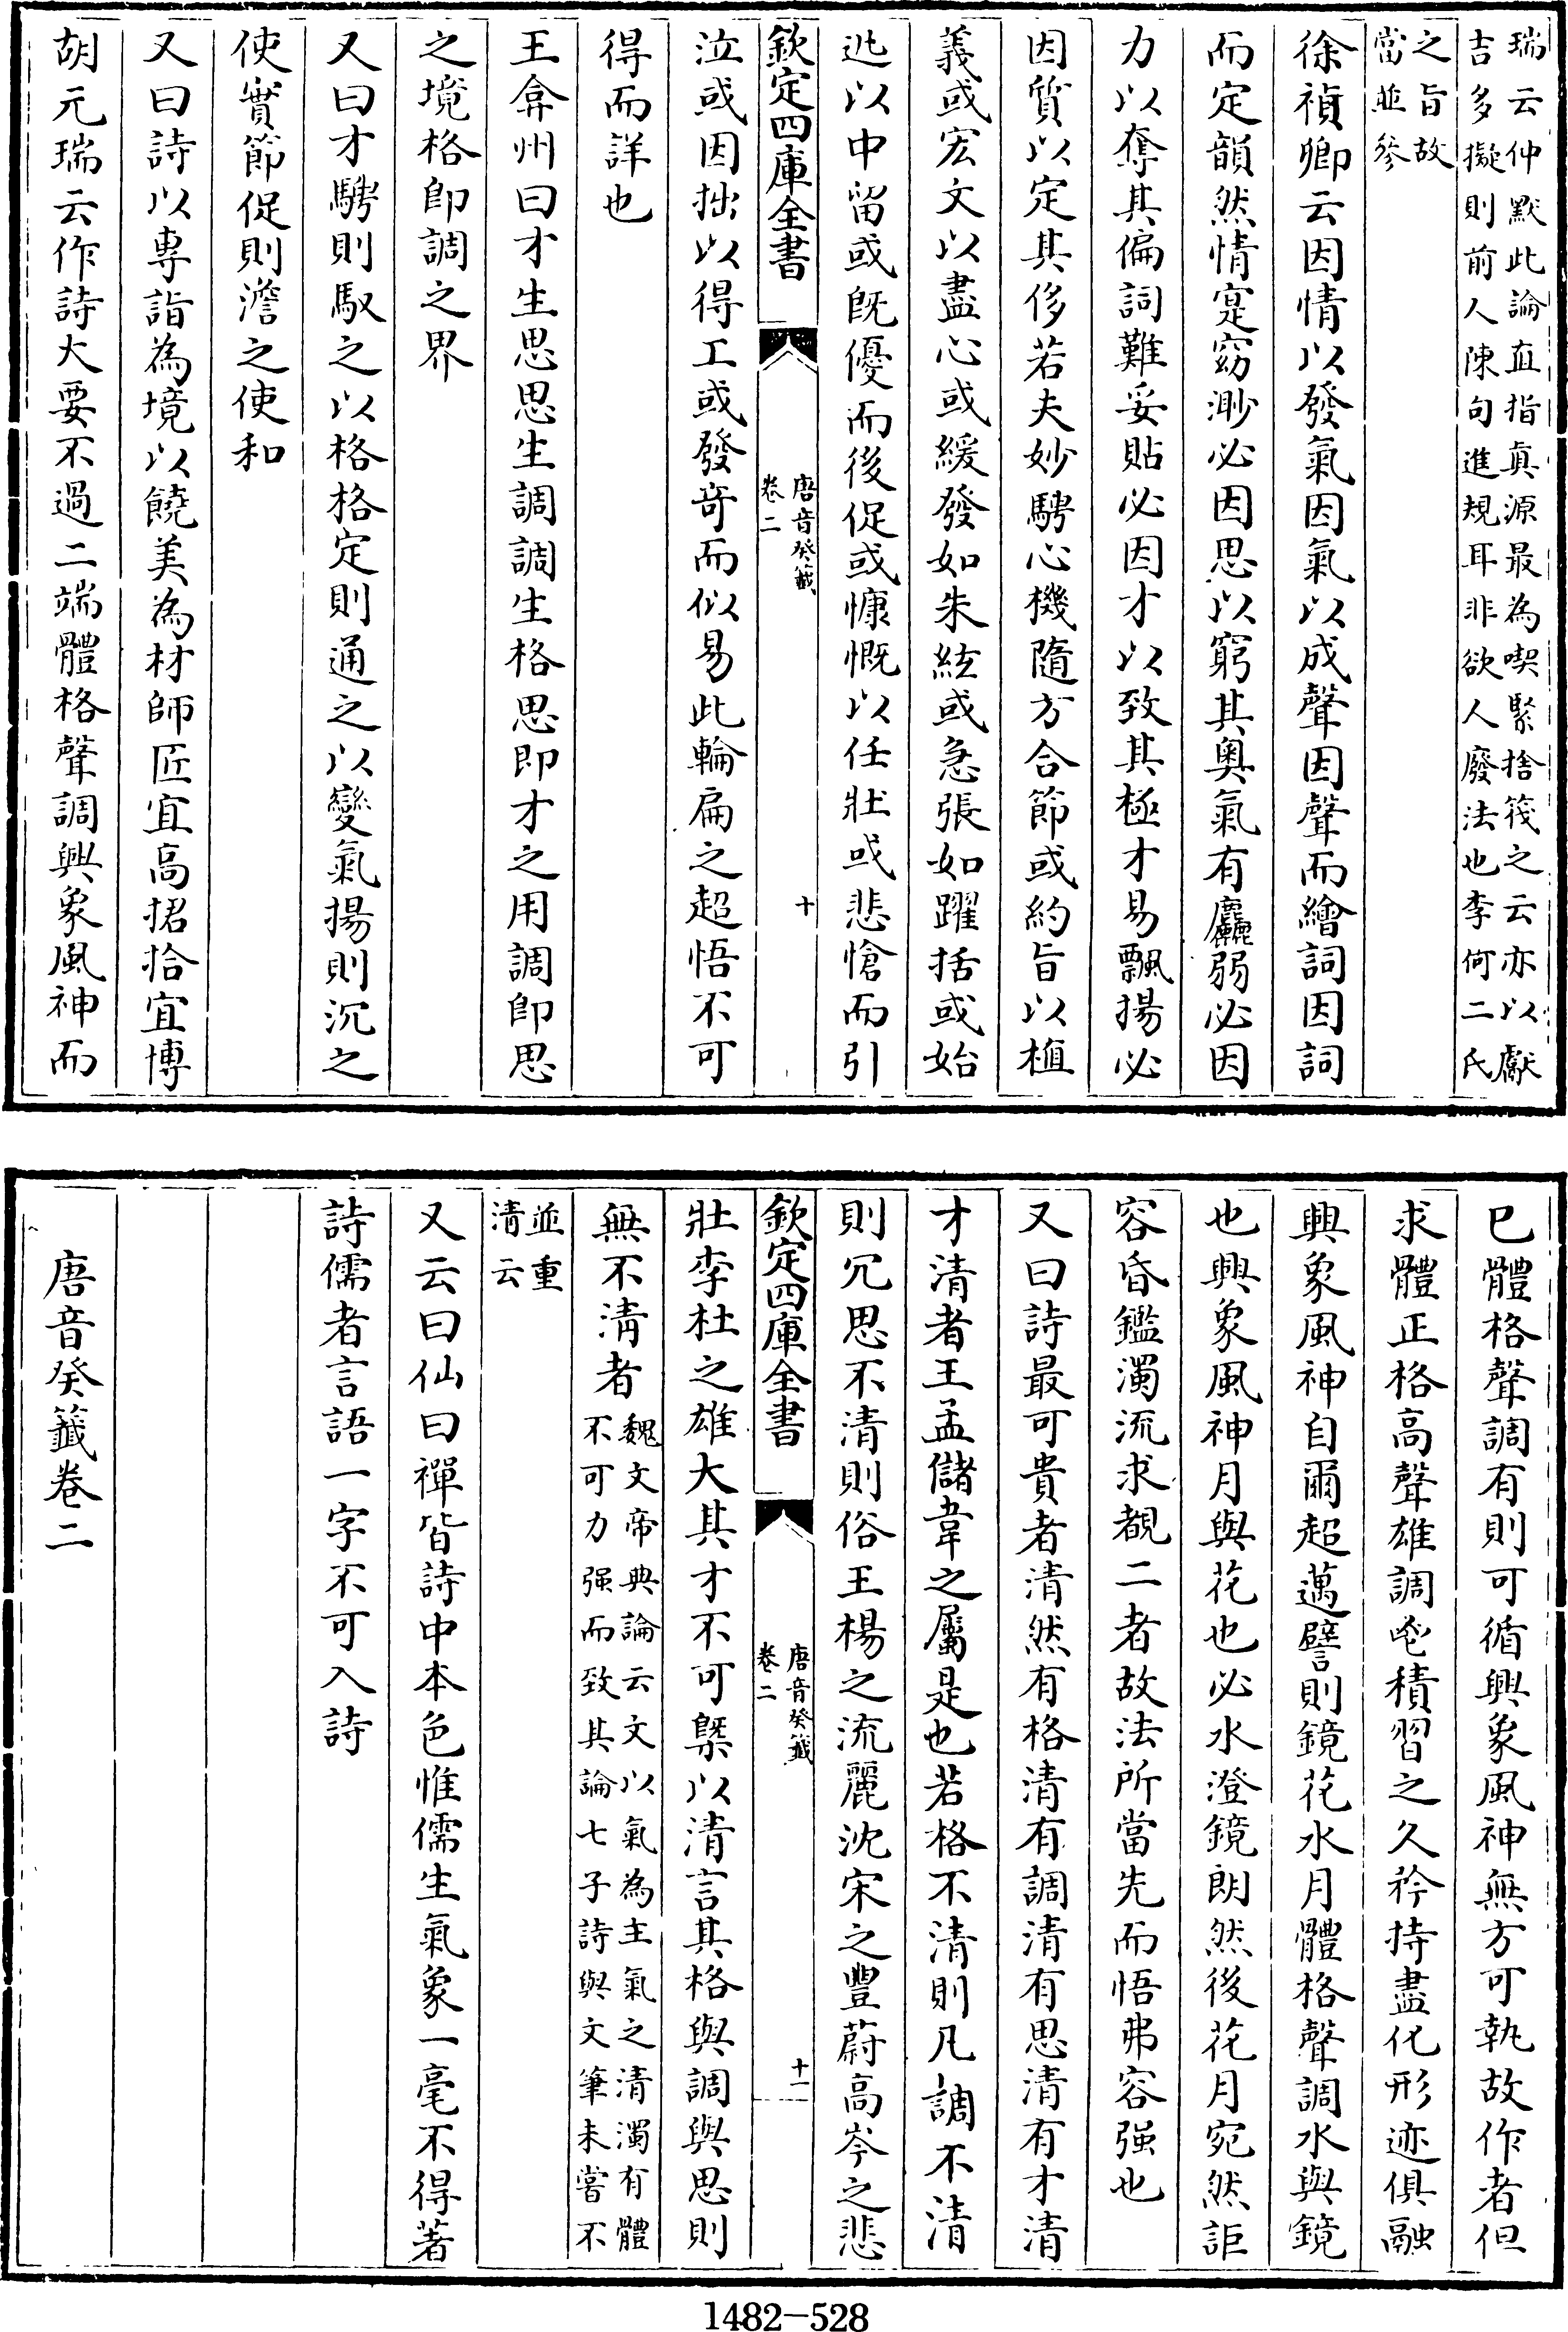 瑞云仲默此論直指真源最為喫緊捨筏之云亦以獻
吉多擬則前人陳句進規耳非欲人廢法也李何二氏
之旨故
當並參
徐禎卿云因情以發氣因氣以成聲因聲而繪詞因詞
而定韻然情寔窈渺必因思以窮其奧氣有麤弱必因
力以奪其偏詞難妥貼必因才以致其極才易飄揚必
因質以定其侈若夫妙騁心機隨方合節或約旨以植
義或宏文以盡心或緩發如朱絃或急張如躍括或始
迅以中留或既優而後促或慷慨以任壯或悲愴而引
欽定四庫全書
唐音癸籤
卷二
十
泣或因拙以得工或發奇而似易此輪扁之超悟不可
得而詳也
王弇州曰才生思思生調調生格思即才之用調即思
之境格即調之界
又曰才騁則馭之以格格定則通之以變氣揚則沉之
使實節促則澹之使和
又曰詩以專詣為境以饒美為材師匠宜高捃拾宜博
胡元瑞云作詩大要不過二端體格聲調興象風神而
已體格聲調有則可循興象風神無方可執故作者但
求體正格高聲雄調鬯積習之久矜持盡化形迹俱融
興象風神自爾超邁譬則鏡花水月體格聲調水與鏡
也興象風神月與花也必水澄鏡朗然後花月宛然詎
容昏鑑濁流求覩二者故法所當先而悟弗容强也
又曰詩最可貴者清然有格清有調清有思清有才清
才清者王孟儲韋之屬是也若格不清則凡調不清
則冗思不清則俗王楊之流麗沈宋之豐蔚高岑之悲
欽定四庫全書
唐音癸籤
卷二
十一
壯李杜之雄大其才不可槩以清言其格與調與思則
無不清者
魏文帝典論云文以氣為主氣之清濁有體
不可力强而致其論七子詩與文筆未嘗不
並重
清云
又云曰仙曰禪皆詩中本色惟儒生氣象一毫不得著
詩儒者言語一字不可入詩
唐音癸籤卷二
1482-528